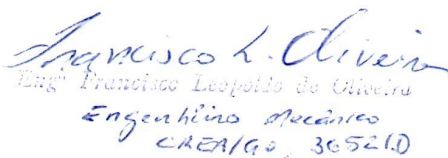 Francisco L. Oliveira
Engº Francisco Leopoldo de Oliveira
Engenheiro Mecânico
CREA/GO 3652/D